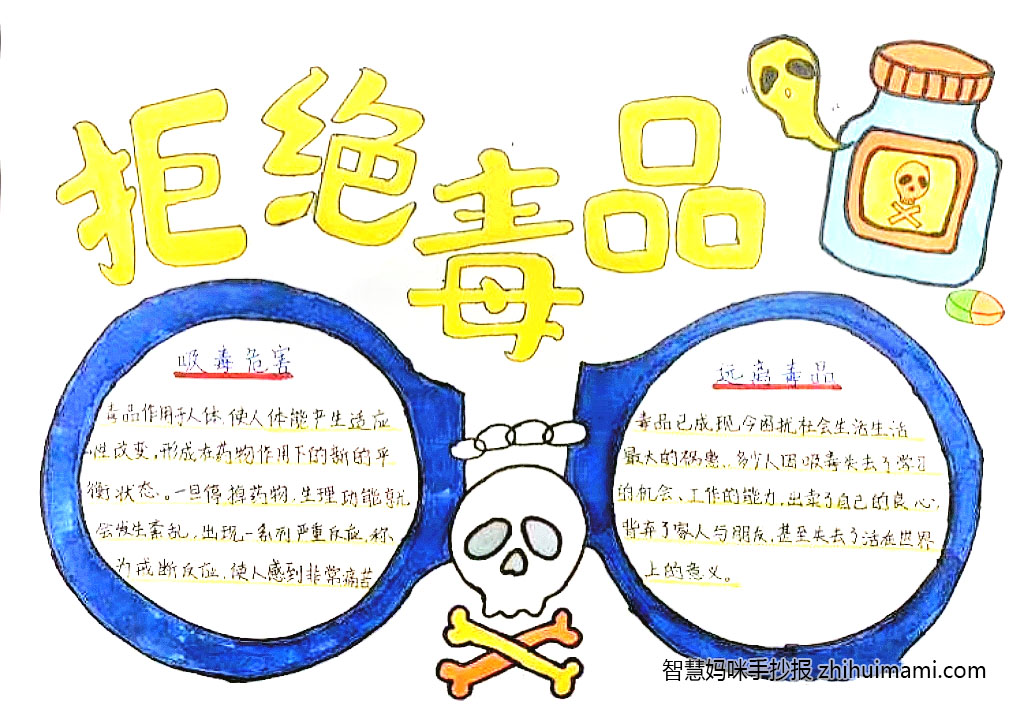 拒绝毒品
吸毒危害
毒品作用于人体,使人体能产生适应
性改变,形成在药物作用下的新的平
衡状态。一旦停掉药物,生理功能就
会发生紊乱,出现一系列严重反应,称
为戒断反应,使人感到非常痛苦
远离毒品
毒品已成现今困扰社会生活生活
最大的祸患。多少人因吸毒失去了学习
的机会、工作的能力,出卖了自己的良心,
背弃了家人与朋友,甚至失去了活在世界
上的意义。
智慧妈咪手抄报 zhihuimami.com